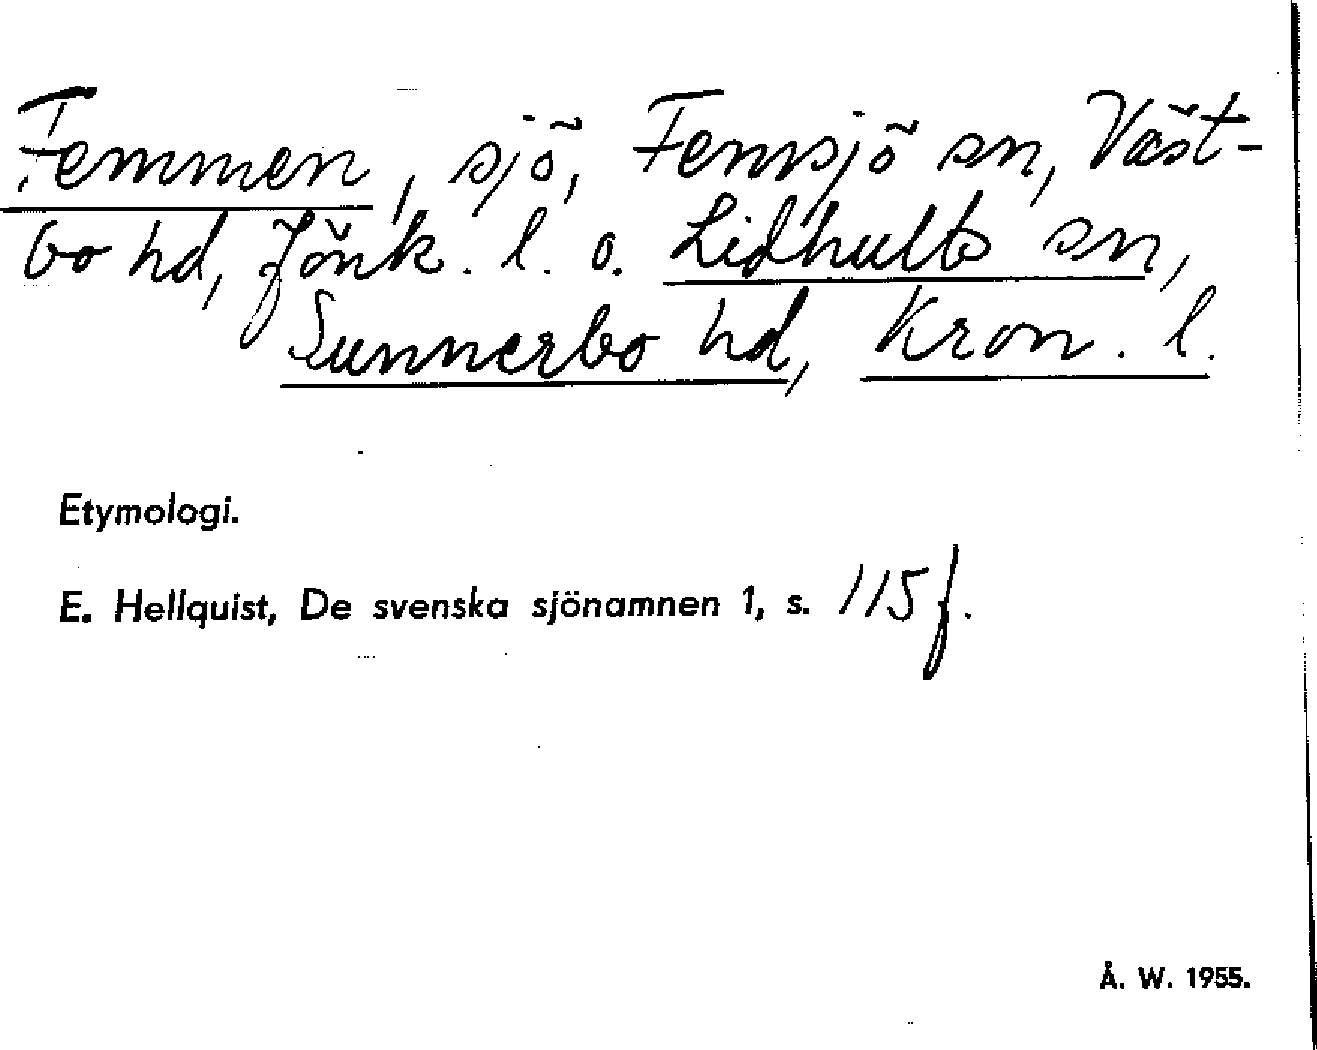 Femmen, sjö, Femsjö sn, Väst-
bo hd, Jönk. l. o. Lidhults sn,
Sunnerbo hd, Kron. l.
Etymologi.
E. Hellquist, De svenska sjönamnen 1, s. 115 f.
Å. W. 1955.